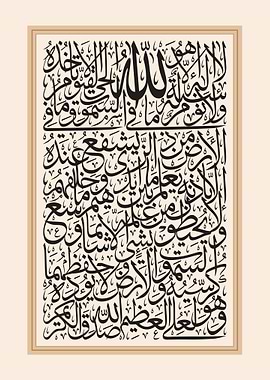 الله لا إله إلا هو الحي القيوم لا تأخذه سنة
ولا نوم له ما في السموات وما في
الأرض من ذا الذي يشفع عنده
إلا بإذنه يعلم ما بين أيديهم وما خلفهم
ولا يحيطون بشيء من علمه إلا بما شاء وسع
كرسيه السموات والأرض ولا يؤده حفظهما
وهو العلي العظيم صدق الله الكريم